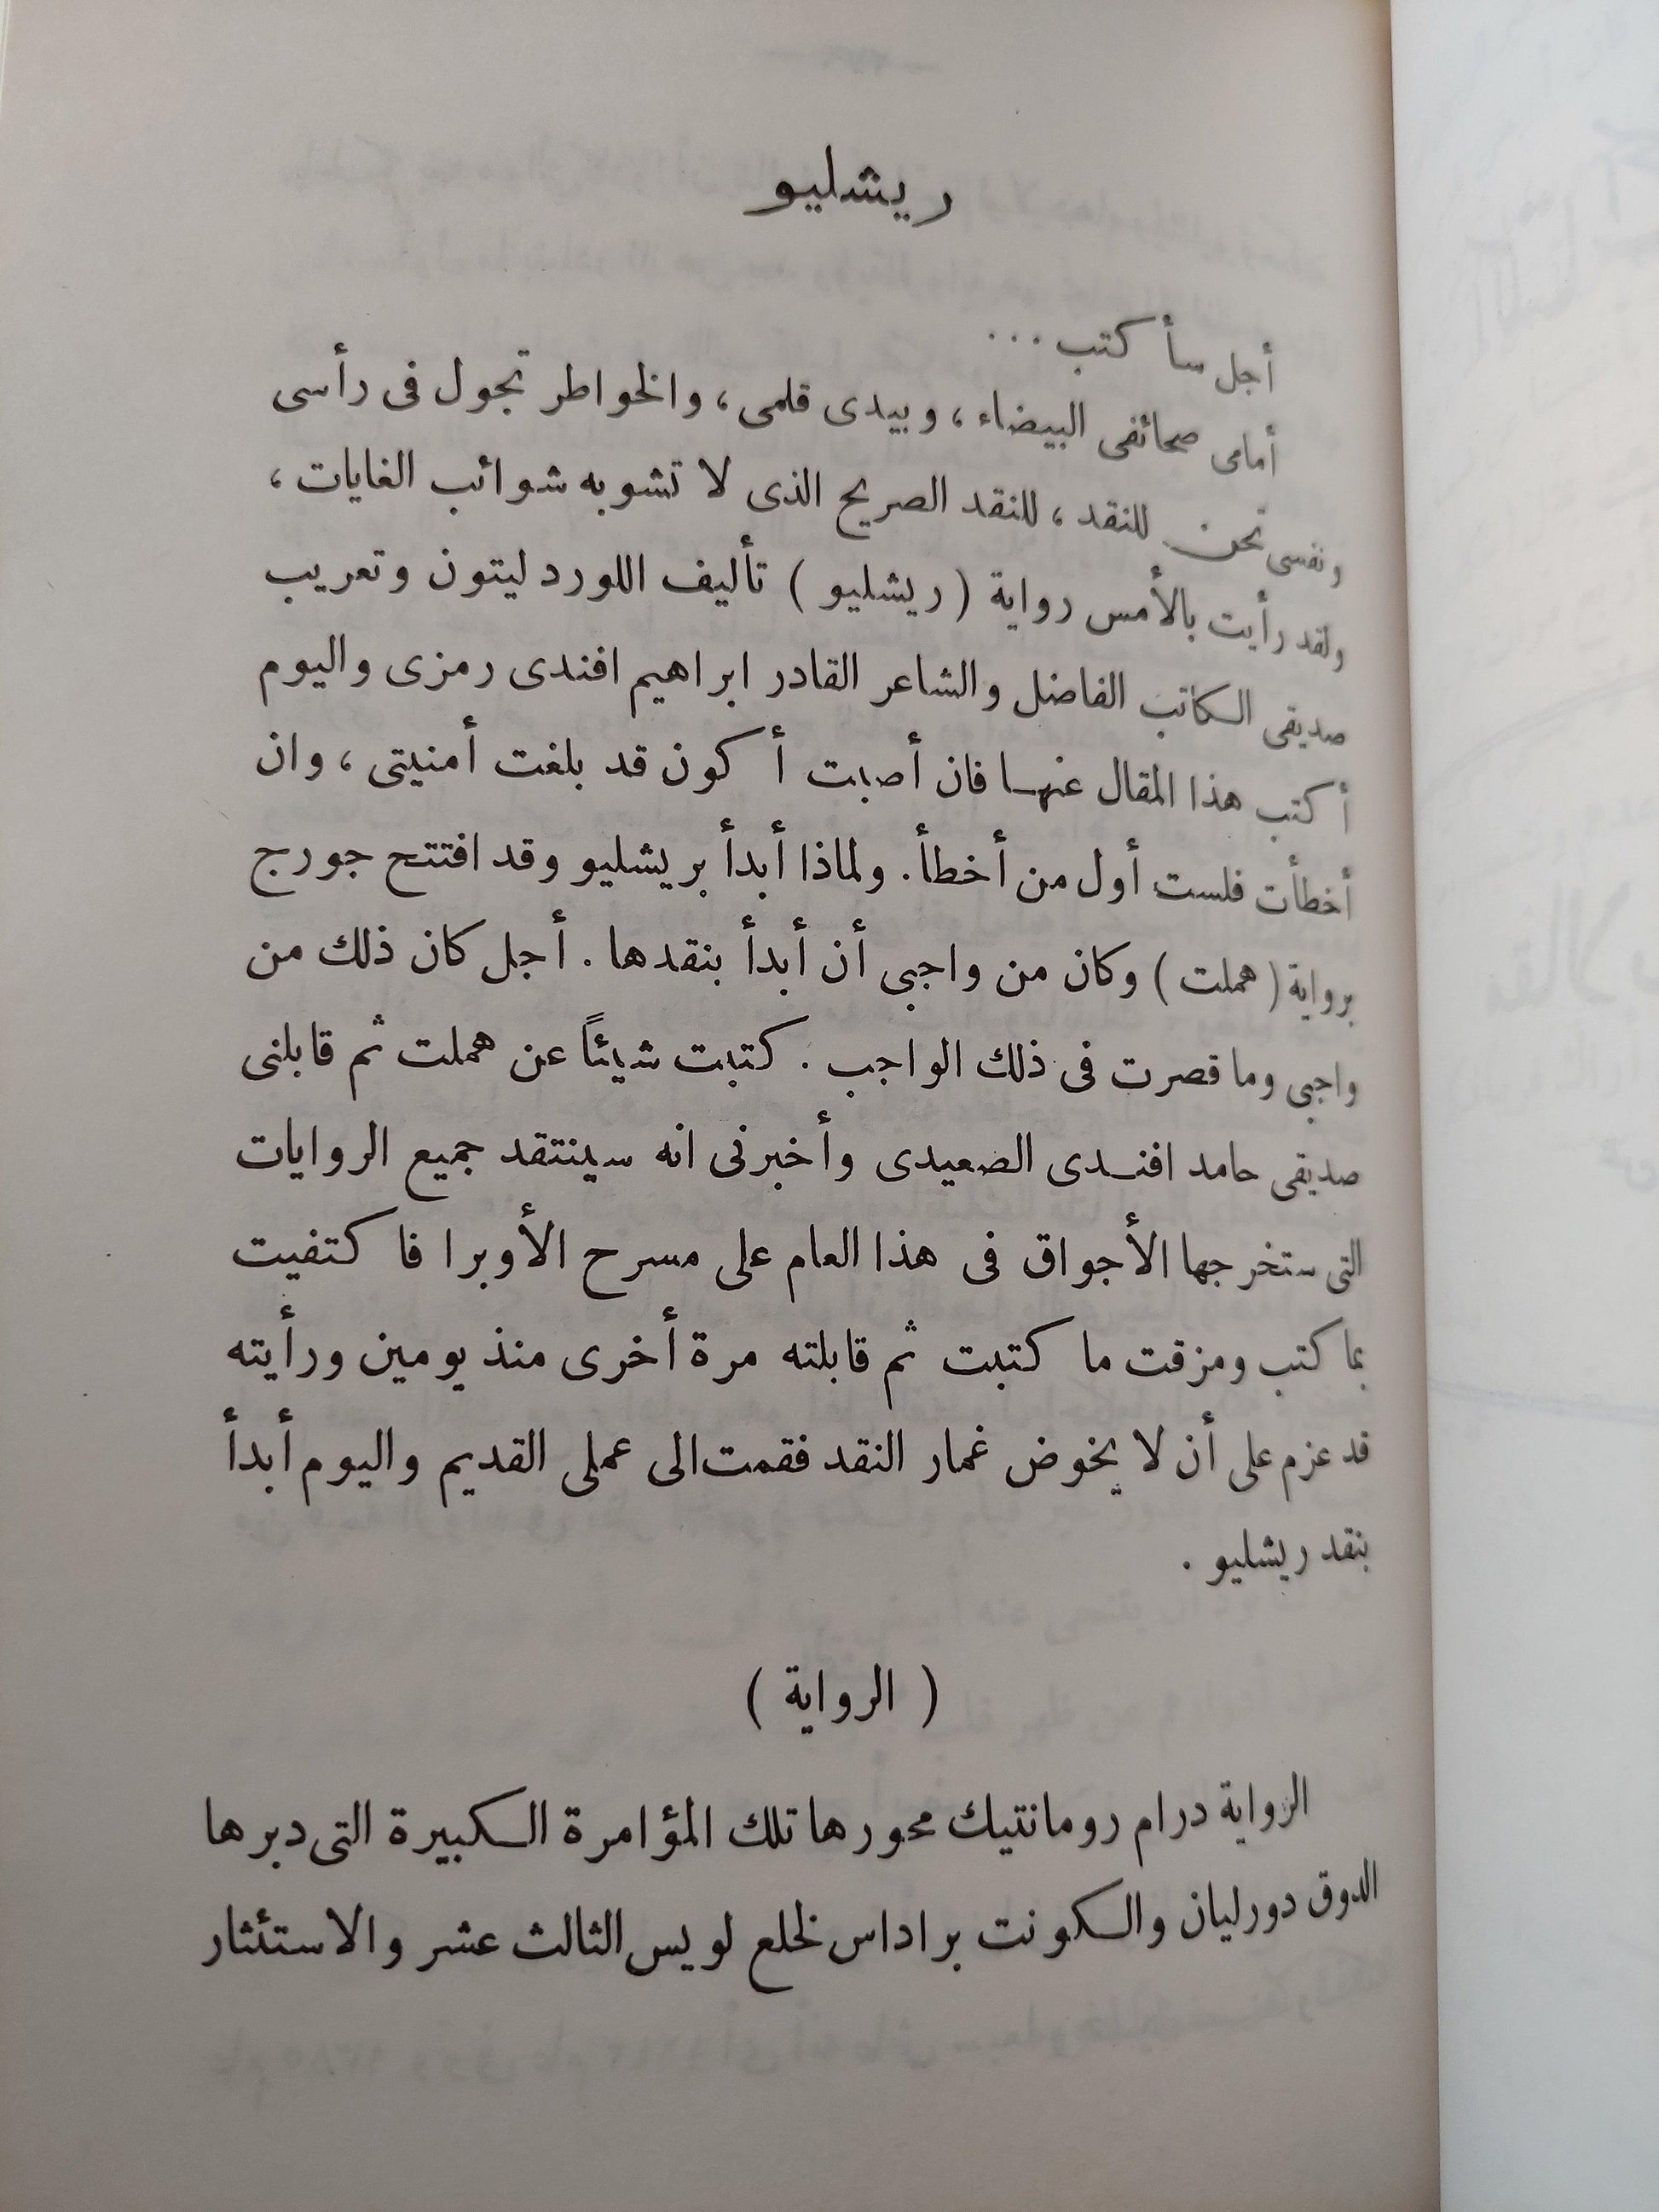 ريشليو
أجل سأكتب ...
أمامى صحائفى البيضاء ، وبيدى قلمى ، والخواطر تجول فى رأسى
ونفسى تحن للنقد ، للنقد الصريح الذى لا تشوبه شوائب الغايات ،
ولقد رأيت بالأمس رواية ( ريشليو ) تأليف اللورد ليتون وتعريب
صديقى الكاتب الفاضل والشاعر القادر ابراهيم افندى رمزى واليوم
أكتب هذا المقال عنها فان أصبت أكون قد بلغت أمنيتى ، وان
أخطأت فلست أول من أخطأ . ولماذا أبدأ بريشليو وقد افتتح جورج
برواية ( هملت ) وكان من واجبي أن أبدأ بنقدها . أجل كان ذلك من
واجبي وما قصرت فى ذلك الواجب . كتبت شيئاً عن هملت ثم قابلنى
صديقى حامد افندى الصعيدى وأخبرنى انه سينتقد جميع الروايات
التى ستخرجها الأجواق فى هذا العام على مسرح الأوبرا فاكتفيت
بما كتب ومزقت ما كتبت ثم قابلته مرة أخرى منذ يومين ورأيته
قد عزم على أن لا يخوض غمار النقد فقمت الى عملى القديم واليوم أبدأ
بنقد ريشليو .
( الرواية )
الرواية درام رومانتيك محورها تلك المؤامرة الكبيرة التى دبرها
الدوق دورليان والكونت براداس لخلع لويس الثالث عشر والاستئثار